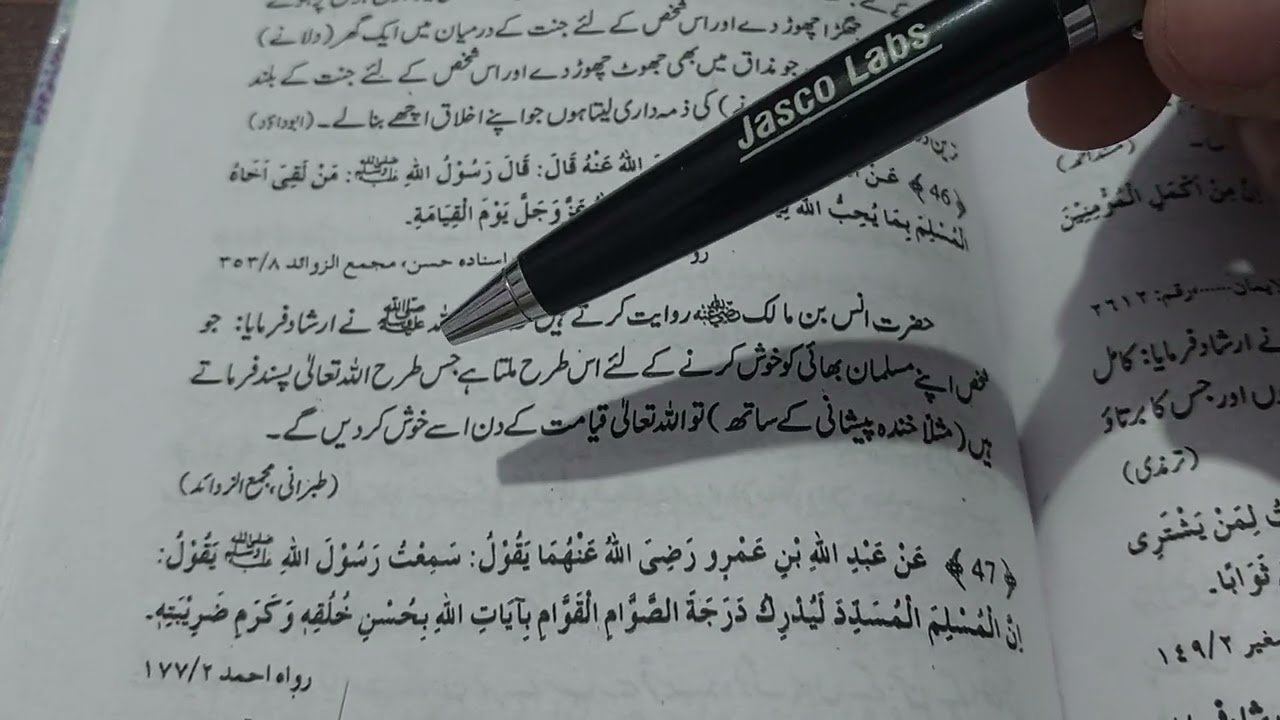 جھگڑا چھوڑ دے اور اس شخص کے لئے جنت کے درمیان میں ایک گھر (دلانے)
جو مذاق میں بھی جھوٹ چھوڑ دے اور اس شخص کے لئے جنت کے بلند
کی ذمہ داری لیتا ہوں جو اپنے اخلاق اچھے بنالے۔ (ابوداؤد)
﴿46﴾ عَنْ اللهُ عَنْهُ قَالَ: قَالَ رَسُوْلُ اللهِ ﷺ: مَنْ لَقِيَ اَخَاهُ
الْمُسْلِمَ بِمَا يُحِبُّ اللهُ عَزَّوَجَلَّ يَوْمَ الْقِيَامَةِ۔
اسنادہ حسن، مجمع الزوائد ٣٥٣/٨
حضرت انس بن مالک ؓ روایت کرتے ہیں ﷺ نے ارشاد فرمایا: جو
شخص اپنے مسلمان بھائی کو خوش کرنے کے لئے اس طرح ملتا ہے جس طرح اللہ تعالیٰ پسند فرماتے
ہیں (مثلاً خندہ پیشانی کے ساتھ) تو اللہ تعالیٰ قیامت کے دن اسے خوش کردیں گے۔
(طبرانی، مجمع الزوائد)
﴿47﴾ عَنْ عَبْدِ اللهِ بْنِ عَمْرٍو رَضِيَ اللهُ عَنْهُمَا يَقُوْلُ: سَمِعْتُ رَسُوْلَ اللهِ ﷺ يَقُوْلُ:
اِنَّ الْمُسْلِمَ الْمُسَدِّدَ لَيُدْرِكُ دَرَجَةَ الصَّوَّامِ الْقَوَّامِ بِآيَاتِ اللهِ بِحُسْنِ خُلُقِهٖ وَكَرَمِ ضَرِيْبَتِهٖ۔
رواہ احمد ١٧٧/٢
Jasco Labs
(مسند احمد)
اِنَّ مِنْ اَكْمَلِ الْمُؤْمِنِيْنَ
رقم: ٢٦١٢
نے ارشاد فرمایا: کامل
اور جس کا برتاؤ
(ترمذی)
لِمَنْ يَشْتَرِى
ثَوَابًا۔
١٤٩/٢